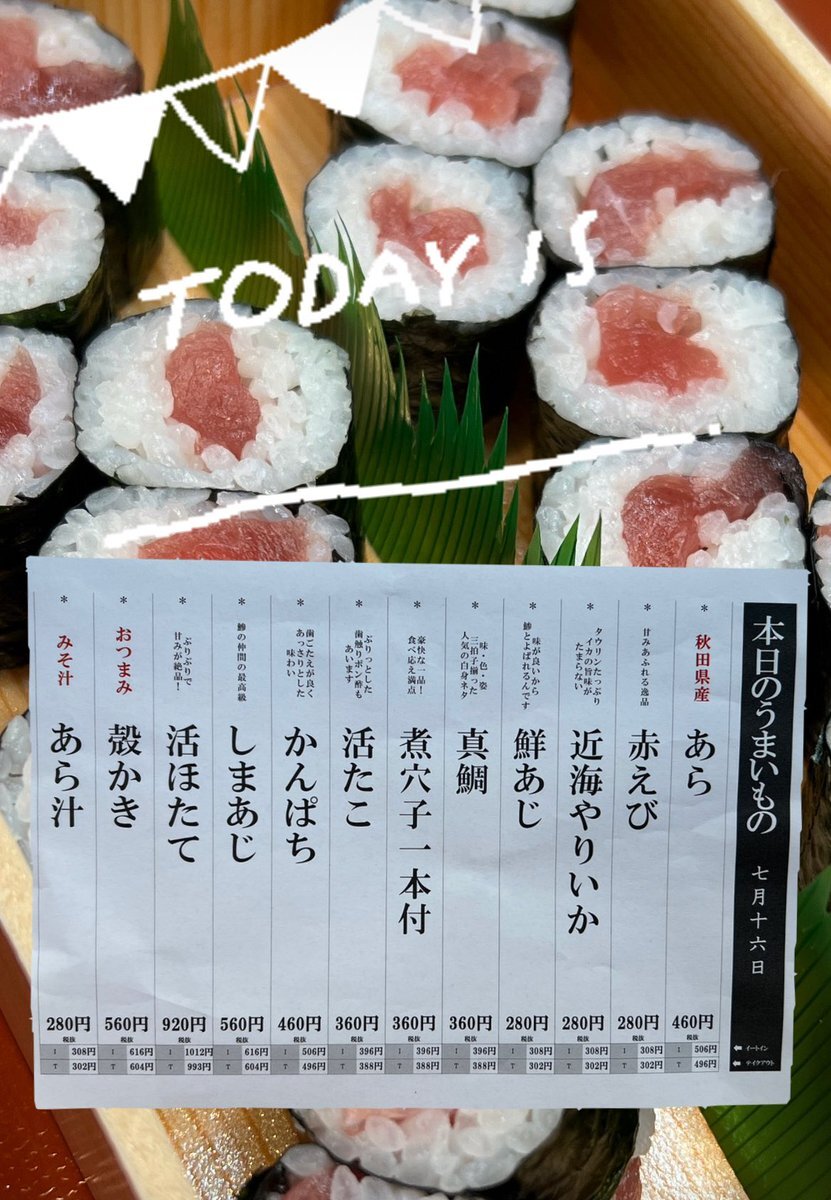 TODAY IS
本日のうまいもの 七月十六日
←イートイン
←テイクアウト
*
秋田県産
あら
460円
税抜
I 506円
T 496円
*
甘みあふれる逸品
赤えび
280円
税抜
I 308円
T 302円
*
タウリンたっぷり
イカの旨味が
たまらない
近海やりいか
280円
税抜
I 308円
T 302円
*
味が良いから
鯵とよばれるんです
鮮あじ
280円
税抜
I 308円
T 302円
*
味・色・姿
三拍子揃った
人気の白身ネタ
真鯛
360円
税抜
I 396円
T 388円
*
豪快な一品！
食べ応え満点
煮穴子一本付
360円
税抜
I 396円
T 388円
*
ぷりっとした
歯触りポン酢も
あいます
活たこ
360円
税抜
I 396円
T 388円
*
歯ごたえが良く
あっさりとした
味わい
かんぱち
460円
税抜
I 506円
T 496円
*
鯵の仲間の最高級
しまあじ
560円
税抜
I 616円
T 604円
*
ぷりぷりで
甘みが絶品！
活ほたて
920円
税抜
I 1012円
T 993円
*
おつまみ
殻かき
560円
税抜
I 616円
T 604円
*
みそ汁
あら汁
280円
税抜
I 308円
T 302円